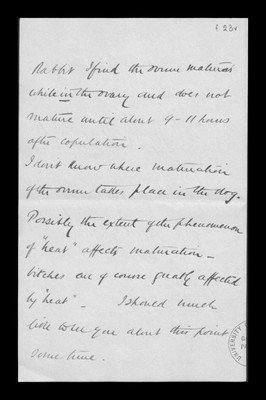 f. 23v
Rabbit I find the ovum matures
while in the ovary and does not
mature until about 9-11 hours
after copulation.
I dont know where maturation
of the ovum takes place in the dog.
Possibly the extent of the phenomenon
of "heat" affects maturation -
bitches are of course greatly affected
by "heat" - I should much
like to see you about this point
some time.
UNIVERSITY